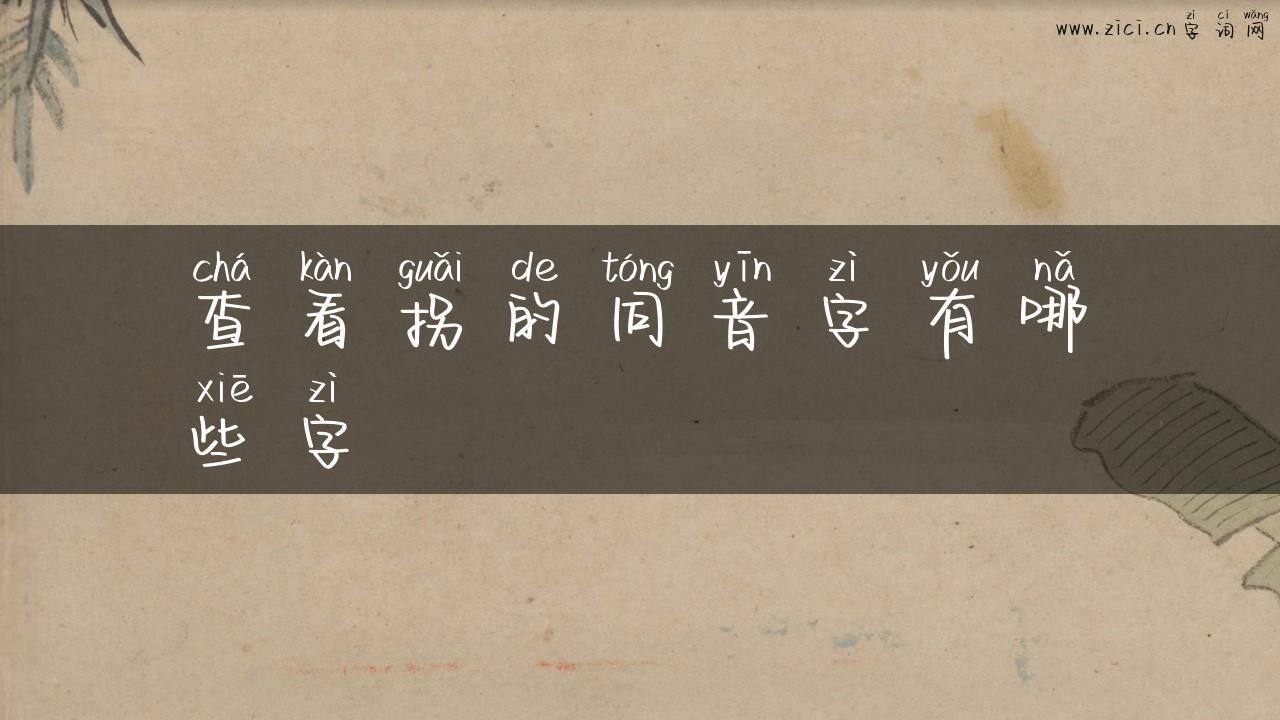 zì cí wǎng
www.zici.cn 字词网
chá kàn guǎi de tóng yīn zì yǒu nǎ
查看拐的同音字有哪
xiē zì
些字